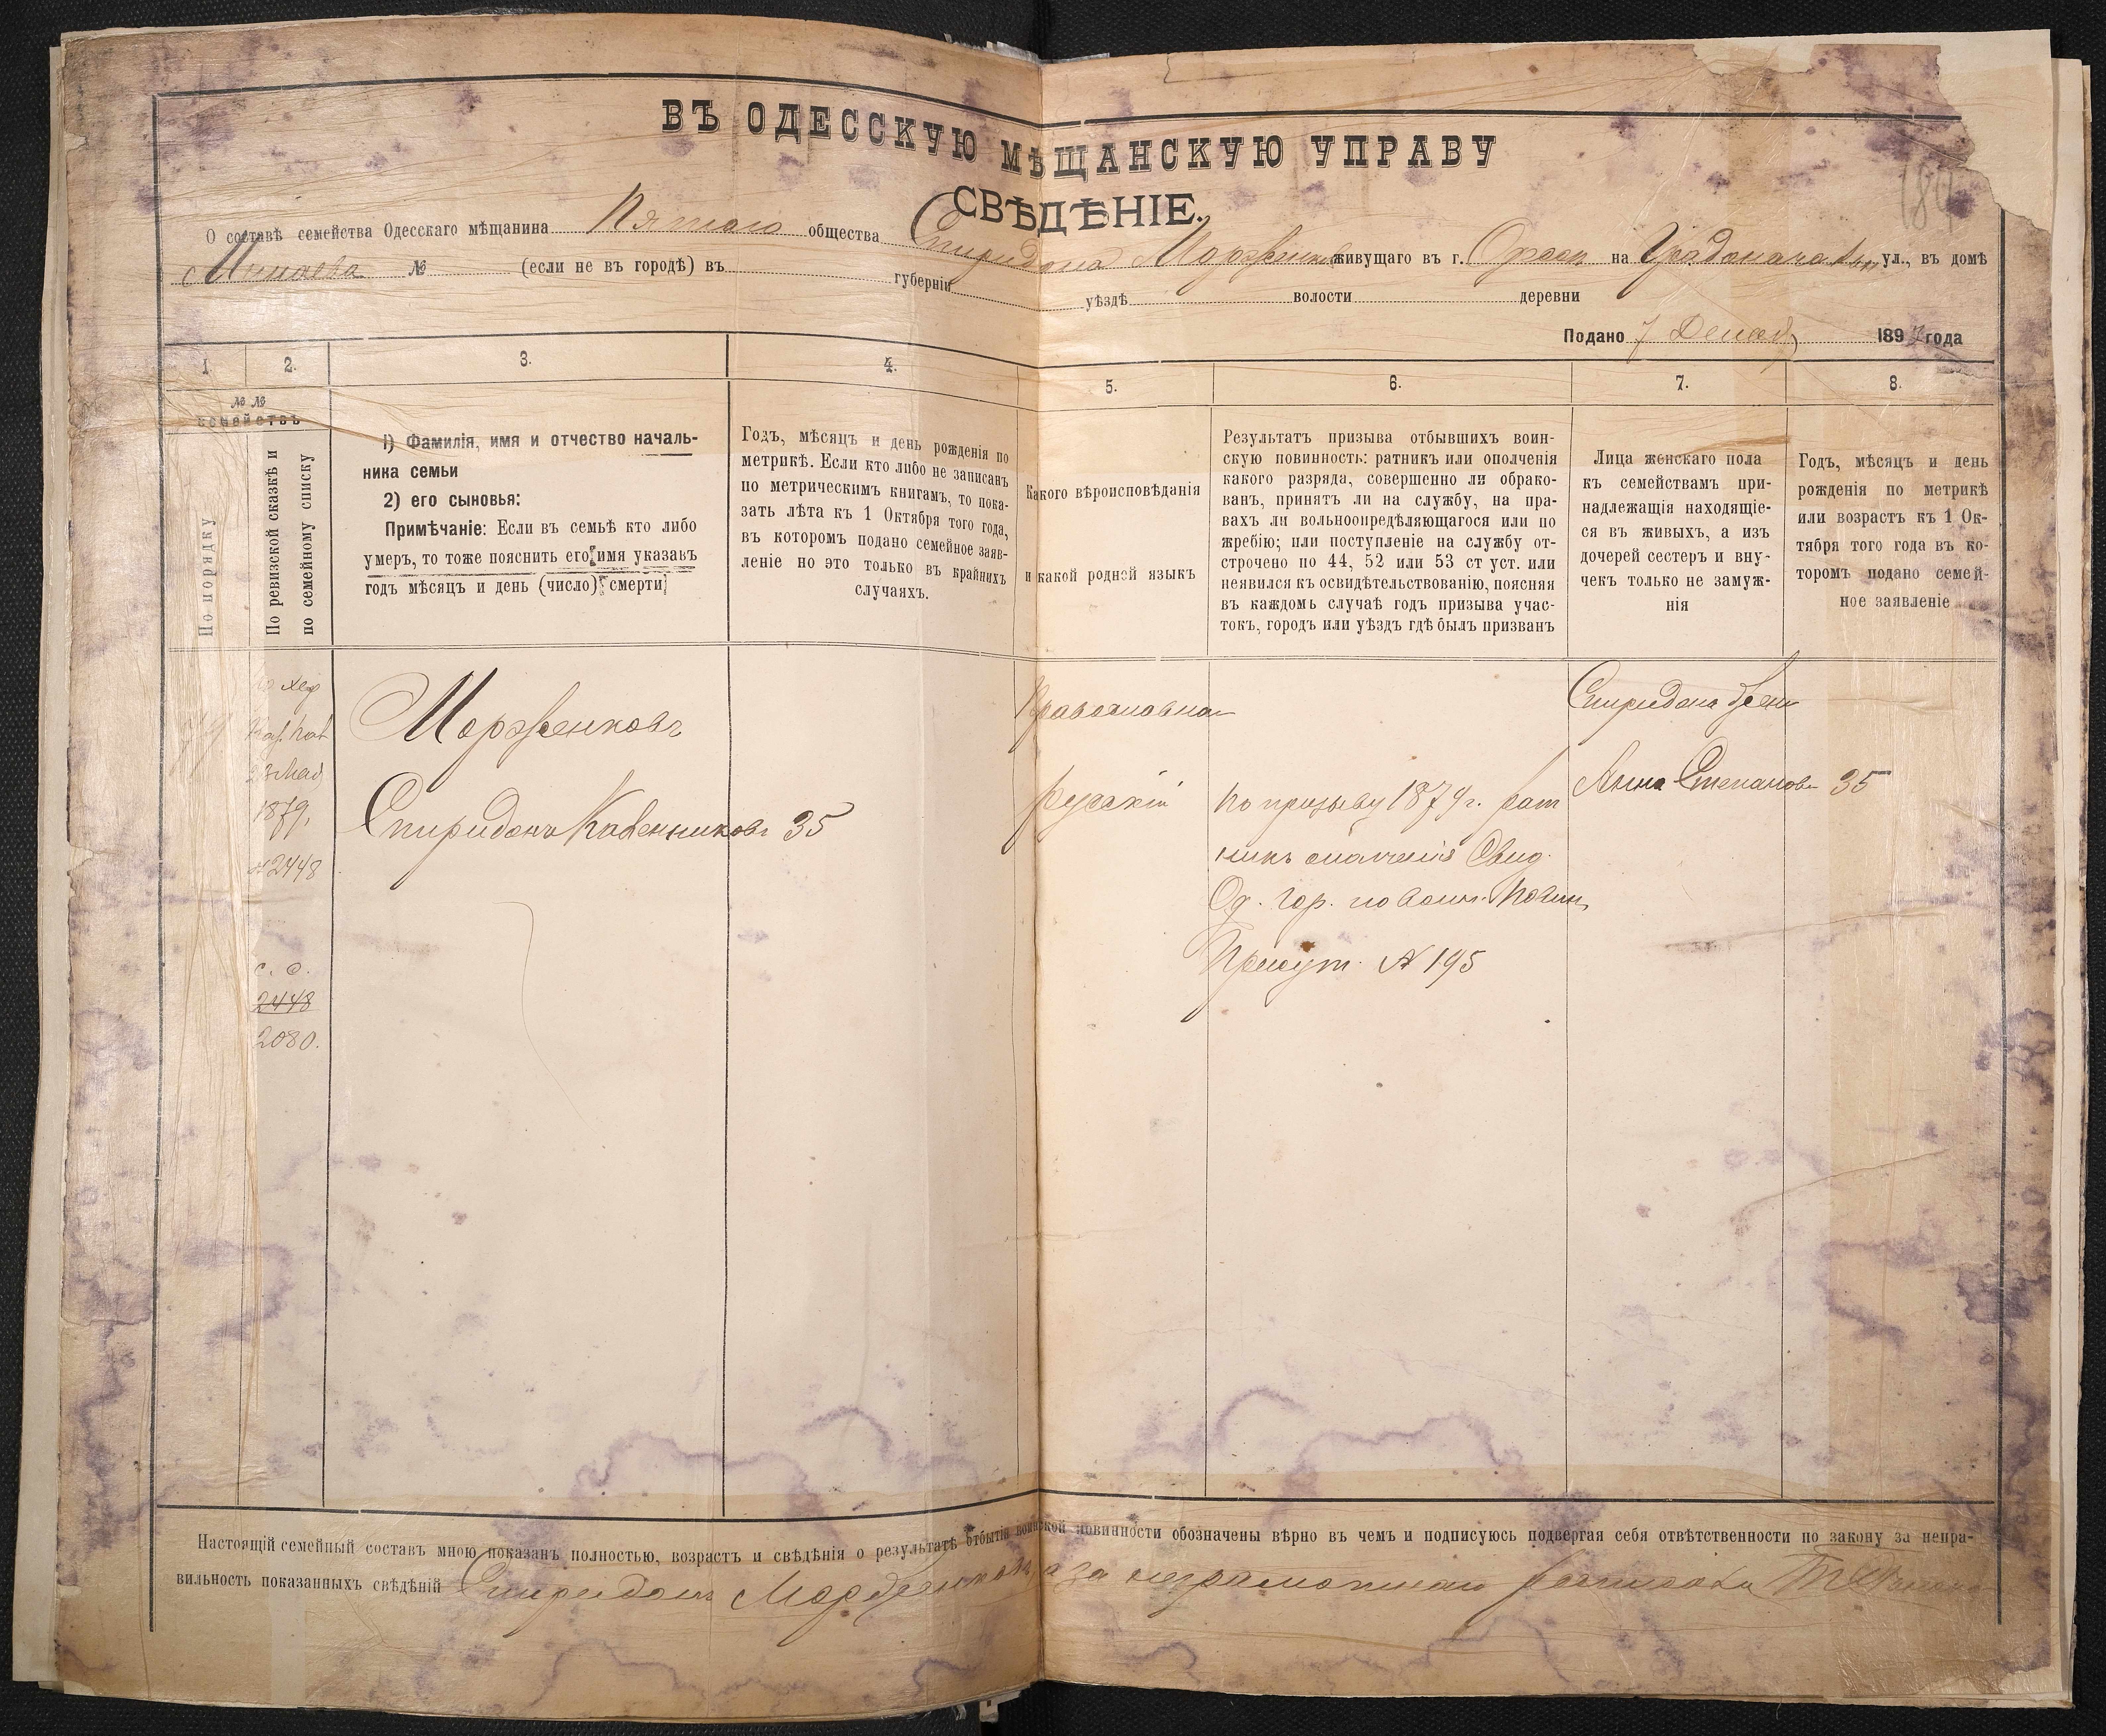 ВЪ ОДЕССКУЮ МѢЩАНСКУЮ УПРАВУ
СВѢДѢНІЕ.
О составѣ семейства Одесскаго мѣщанина Пятаго общества Спиридона Морженкова живущаго въ г. Одессѣ на Градоначал ул., въ домѣ
Минаева № (если не въ городѣ) въ губерніи уѣздѣ волости деревни
Подано 7 Декаб 1897 года
1 2. 3. 4. 5. 6. 7. 8.
№ №
семействъ
По порядку
По ревизской сказкѣ и
по семейному списку
1) Фамилія, имя и отчество началь-
ника семьи
2) его сыновья:
Примѣчаніе: Если въ семьѣ кто либо
умеръ, то тоже пояснить его имя указавъ
годъ мѣсяцъ и день (число) смерти
Годъ, мѣсяцъ и день рожденія по
метрикѣ. Если кто либо не записанъ
по метрическимъ книгамъ, то пока-
зать лѣта къ 1 Октября того года,
въ которомъ подано семейное заяв-
леніе но это только въ крайнихъ
случаяхъ.
Какого вѣроисповѣданія
и какой родной языкъ
Результатъ призыва отбывшихъ воин-
скую повинность: ратникъ или ополченія
какого разряда, совершенно ли обрако-
ванъ, принятъ ли на службу, на пра-
вахъ ли вольноопредѣляющагося или по
жребію; или поступленіе на службу от-
строчено по 44, 52 или 53 ст уст. или
неявился къ освидѣтельствованію, поясняя
въ каждомъ случаѣ годъ призыва учас-
токъ, городъ или уѣздъ гдѣ былъ призванъ
Лица женскаго пола
къ семействамъ при-
надлежащія находящіе-
ся въ живыхъ, а изъ
дочерей сестеръ и вну-
чекъ только не замуж-
нія
Годъ, мѣсяцъ и день
рожденія по метрикѣ
или возрастъ къ 1 Ок-
тября того года въ ко-
торомъ подано семей-
ное заявленіе
Каз. Пал
28 Мая
1879.
№ 2448
с. с.
2448
2080.
Морженковъ
Спиридонъ 35
Православная
русскій
По призыву 1879 г. рат
никъ ополченія Свид.
Од. гор. по воин. повин.
Присут. № 195
Спиридона жена
Анна Степанова 35
Настоящій семейный составъ мною показанъ полностью, возрастъ и свѣдѣнія о результатѣ отбытія воинской повинности обозначены вѣрно въ чемъ и подписуюсь подвергая себя отвѣтственности по закону за непра-
вильность показанныхъ свѣдѣній Спиридонъ Морженковъ а за неграмотнаго